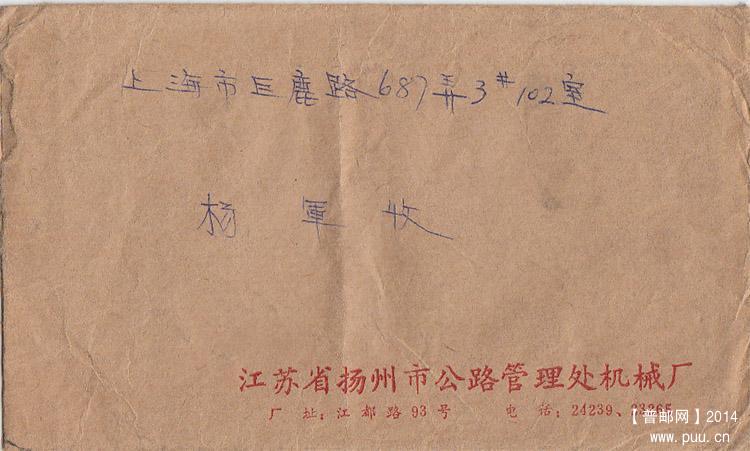 上海市巨鹿路687弄3#102室
杨军收
江苏省扬州市公路管理处机械厂
厂址:江都路93号 电话:24239、23265
【普邮网】2014
www.puu.cn